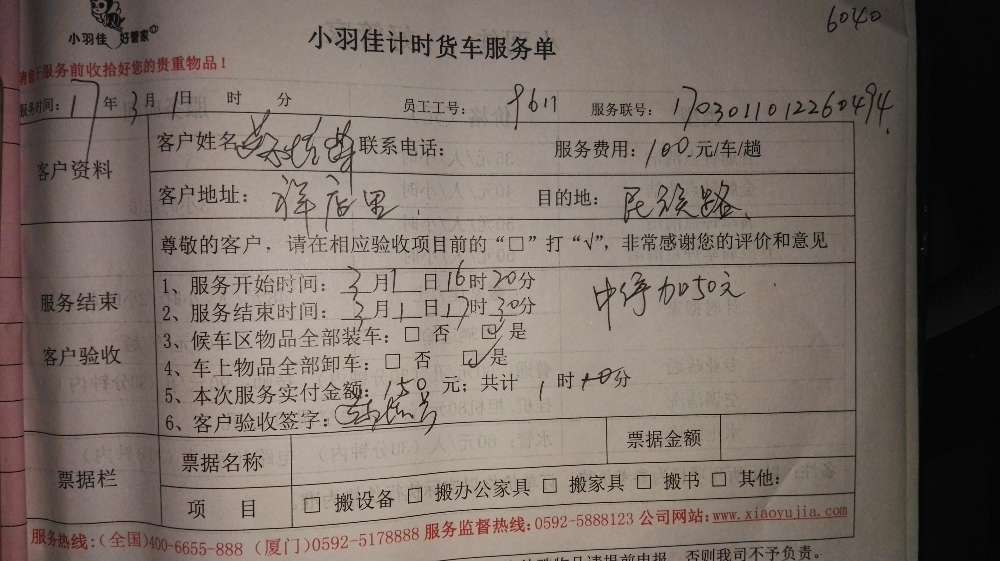 6040
小羽佳 好管家
小羽佳计时货车服务单
请您于服务前收拾好您的贵重物品！
服务时间：17年3月1日 时 分 员工工号：9611 服务联号：1703011012260494
客户资料
客户姓名 联系电话： 服务费用：100元/车/趟
客户地址：祥店里 目的地：民族路
服务结束
客户验收
尊敬的客户，请在相应验收项目前的“□”打“√”，非常感谢您的评价和意见
1、服务开始时间：3月1日16时20分
2、服务结束时间：3月1日17时30分
中停加50元
3、候车区物品全部装车：□ 否 ☑ 是
4、车上物品全部卸车：□ 否 ☑ 是
5、本次服务实付金额：150元；共计1时10分
6、客户验收签字：
票据栏
票据名称 票据金额
项 目 □ 搬设备 □ 搬办公家具 □ 搬家具 □ 搬书 □ 其他：
服务热线：(全国)400-6655-888 (厦门)0592-5178888 服务监督热线：0592-5888123 公司网站：www.xiaoyujia.com
物品请提前申报，否则我司不予负责。